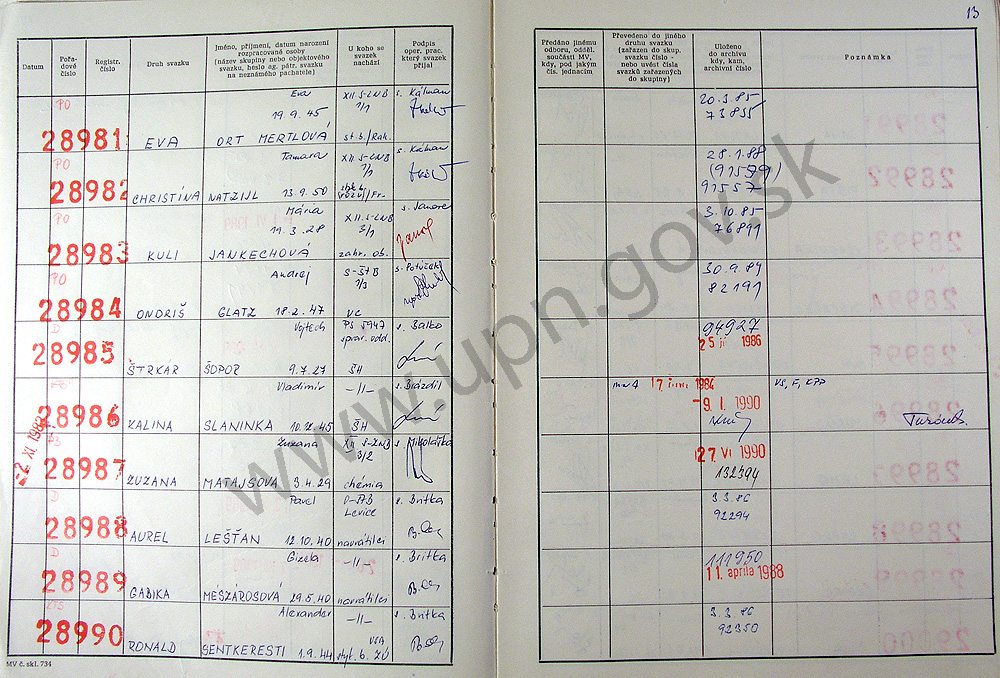 13
Datum
Pořa-
dové
číslo
Registr.
číslo
Druh svazku
Jméno, příjmení, datum narození
rozpracované osoby
(název skupiny nebo objektového
svazku, heslo ag. pátr. svazku
na neznámého pachatele)
U koho se
svazek
nachází
Podpis
oper. prac.
který svazek
přijal
Předáno jinému
odboru, odděl.
součásti MV,
kdy, pod jakým
čís. jednacím
Převedeno do jiného
druhu svazku
(zařazen do skup.
svazku číslo -
nebo uvést čísla
svazků zařazených
do skupiny)
Uloženo
do archivu
kdy, kam,
archivní číslo
Poznámka
PO
28981
EVA
Eva
19.9.45
ORT MERTLOVÁ
XII S-ZNB
1/1
s. Kálman
20.3.85
73855
PO
28982
CHRISTÍNA
Tamara
NATZIJL 13.9.50
XII S-ZNB
1/1
s. Kálman
28.1.88
(91579)
91557
PO
28983
KULI
Mária
11.3.28
JANKECHOVÁ
XII. S-ZNB
3/1
zahr. ob.
3.10.85
76891
PO
28984
ONDRIŠ
Andrej
GLATZ 18.2.47
S-ŠtB
1/3
VC
30.9.87
82191
D
28985
ŠTRKAR
Vojtech
ŠOPOR 9.7.27
PS 5947
správ. odd.
ŠH
s. Balko
94927
25 1986
28986
KALINA
Vladimír
SLANINKA 10.12.45
-11-
ŠH
s. Brázdil
17 1986
-9. I. 1990
VŠ, F, KPP
-2 XI 1982
28987
ZUZANA
Zuzana
MATAJSOVÁ 3.4.29
XII S-ZNB
3/2
chémia
s. Mikoláška
27 VI 1990
132394
D
28988
AUREL
Pavel
LEŠŤAN 12.10.40
Levice
navrátilci
s. Britka
3.3.86
92294
D
28989
GABIKA
Gizela
MÉSZÁROSOVÁ 29.5.40
-11-
navrátilci
s. Britka
111950
11. apríla 1988
28990
RONALD
Alexander
SENTKERESTI 1.9.44
-11-
s. Britka
3.3.86
92350
MV č. skl. 734
www.upn.gov.sk